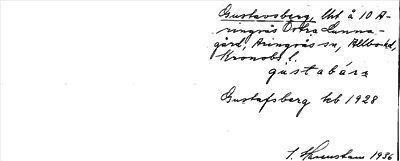 Gustavsberg, lht å 10 A-
ringsås Östra Lunna-
gård, Aringsås sn, Allbo hd,
Kronobs l.
gustabár̨
Gustafsberg kb 1928
J. Harnstam 1936